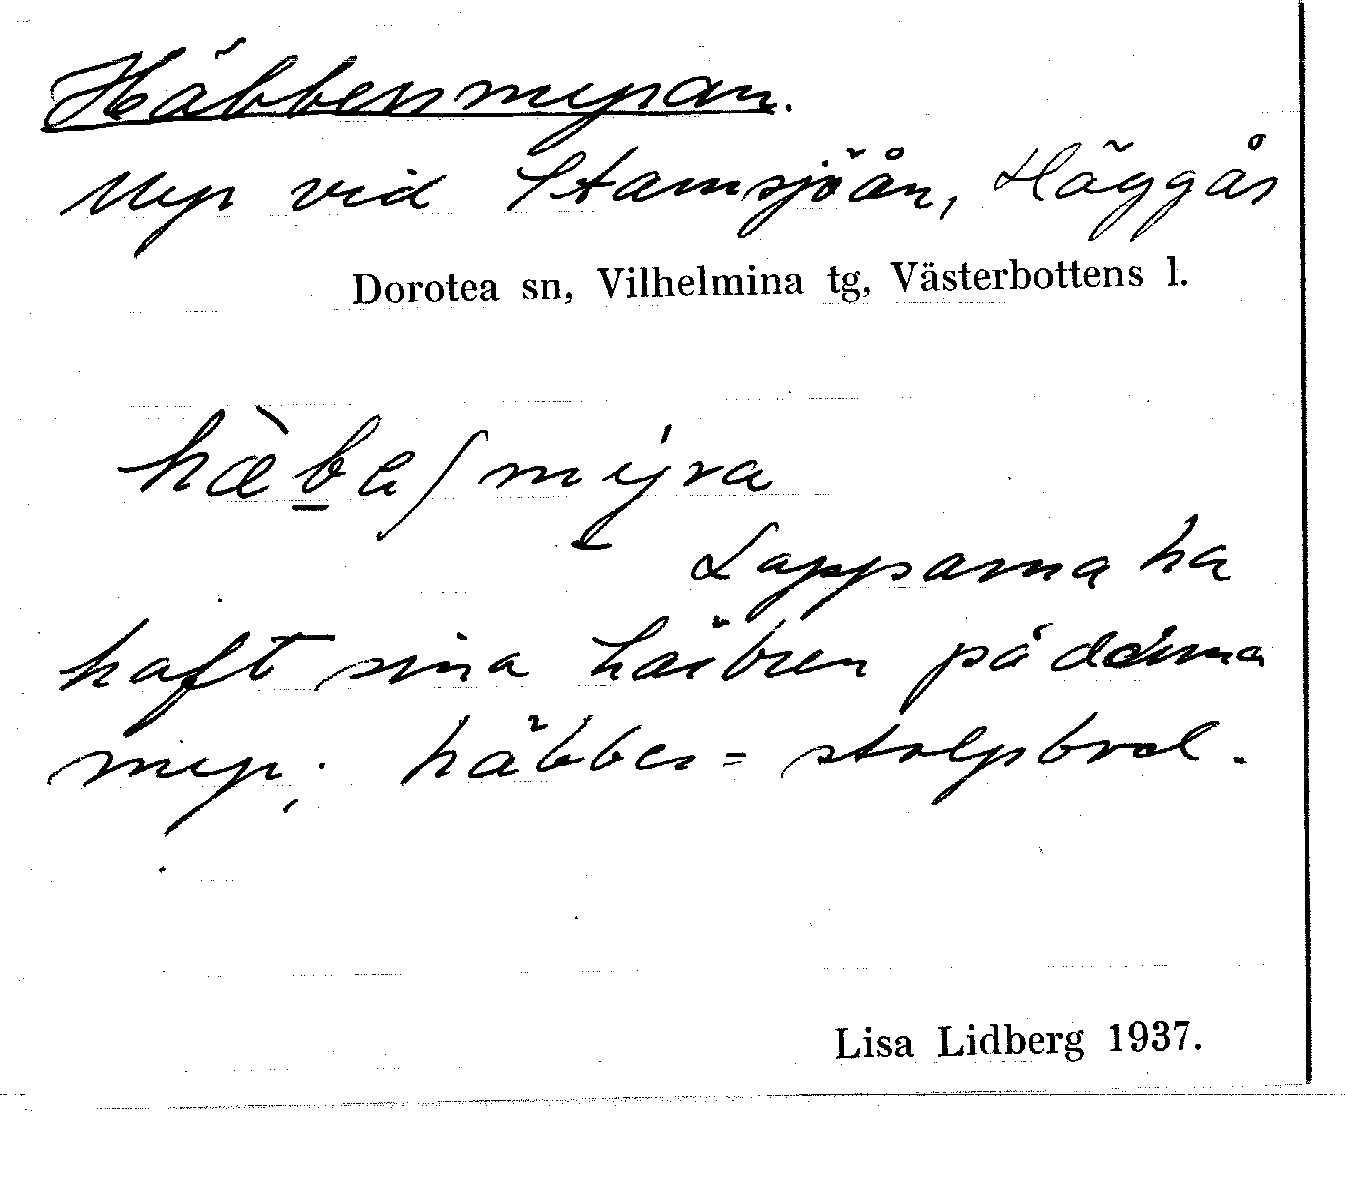 Häbbersmyran.
Myr vid Stamsjöån, Häggås
Dorotea sn, Vilhelmina tg, Västerbottens l.
hæ̀be/mýra
Lapparna ha
haft sina häbren på denna
myr; häbber = stolpbod.
Lisa Lidberg 1937.